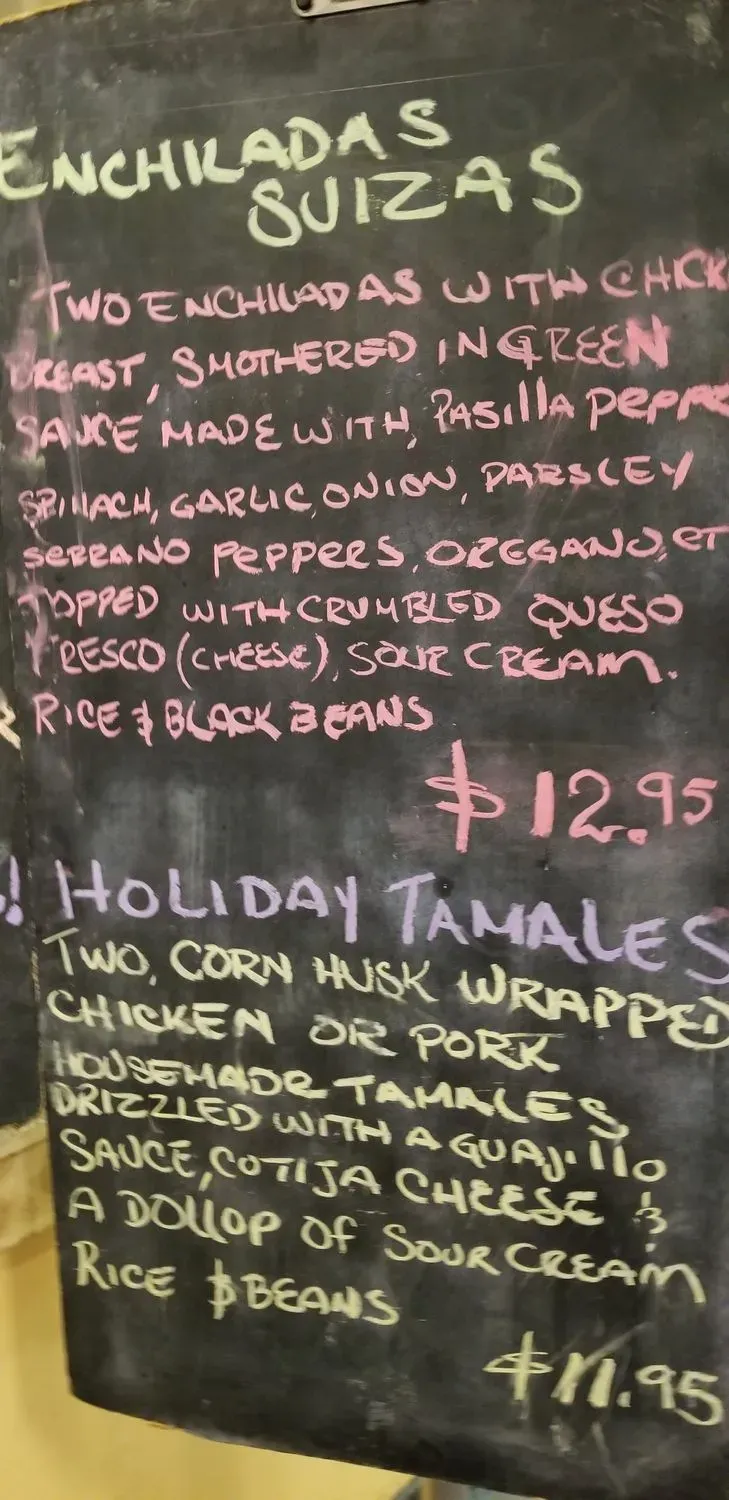 ENCHILADAS
SUIZAS
TWO ENCHILADAS WITH CHICK
BREAST, SMOTHERED IN GREEN
SAUCE MADE WITH, PASIllA PEPPE
SPINACH, GARLIC, ONION, PARSLEY
SERRANO PEPPERS, OREGANO, ET
TOPPED WITH CRUMBLED QUESO
FRESCO (CHEESE), SOUR CREAM.
RICE & BLACK BEANS
$12.95
! HOLIDAY TAMALES
TWO, CORN HUSK WRAPPED
CHICKEN OR PORK
HOUSEMADE TAMALES
DRIZZLED WITH A GUAJIllO
SAUCE, COTIJA CHEESE &
A DOLLOP OF SOUR CREAM
RICE & BEANS
$11.95